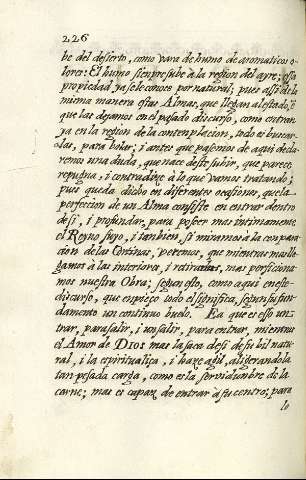 226
be del desierto, como vara de humo de aromaticos o-
lores: El humo sienpre sube à la region del ayre; essa
propiedad ya se le conoce por natural; pues assi de la
misma manera estas Almas, que llegan al estado, ẽ
que las dejamos en el pasado discurso, como entran
ya en la region de la contemplacion, todo es buscar
alas, para bolar; i antes que pasemos de aqui decla-
remos una duda, que nace deste subir, que parece,
repugna, i contradize à lo que vamos tratando;
pues queda dicho en diferentes ocasiones, que la
perfeccion de un Alma consiste en entrar dentro
de si, i profundar, para poseer mas intimamente
el Reyno suyo, i tanbien, si miramos à la conpara-
cion de las Cortinas, veremos, que mientras mas lle-
gamos à las interiores, i retiradas, mas perficiona-
mos nuestra Obra; segun esto, como aqui en este
discurso, que enpieço todo el significa, segun su fun-
damento un continuo buelo. Ea que es esso un en-
trar, para salir, i un salir, para entrar, mientras
el Amor de DIOS mas la saca de si de su bil natu-
ral, i la espiritualiza, i haze agil, aligerandola
tan pesada carga, como es la servidunbre de la
carne; mas es capaz de entrar à su centro; para
lo